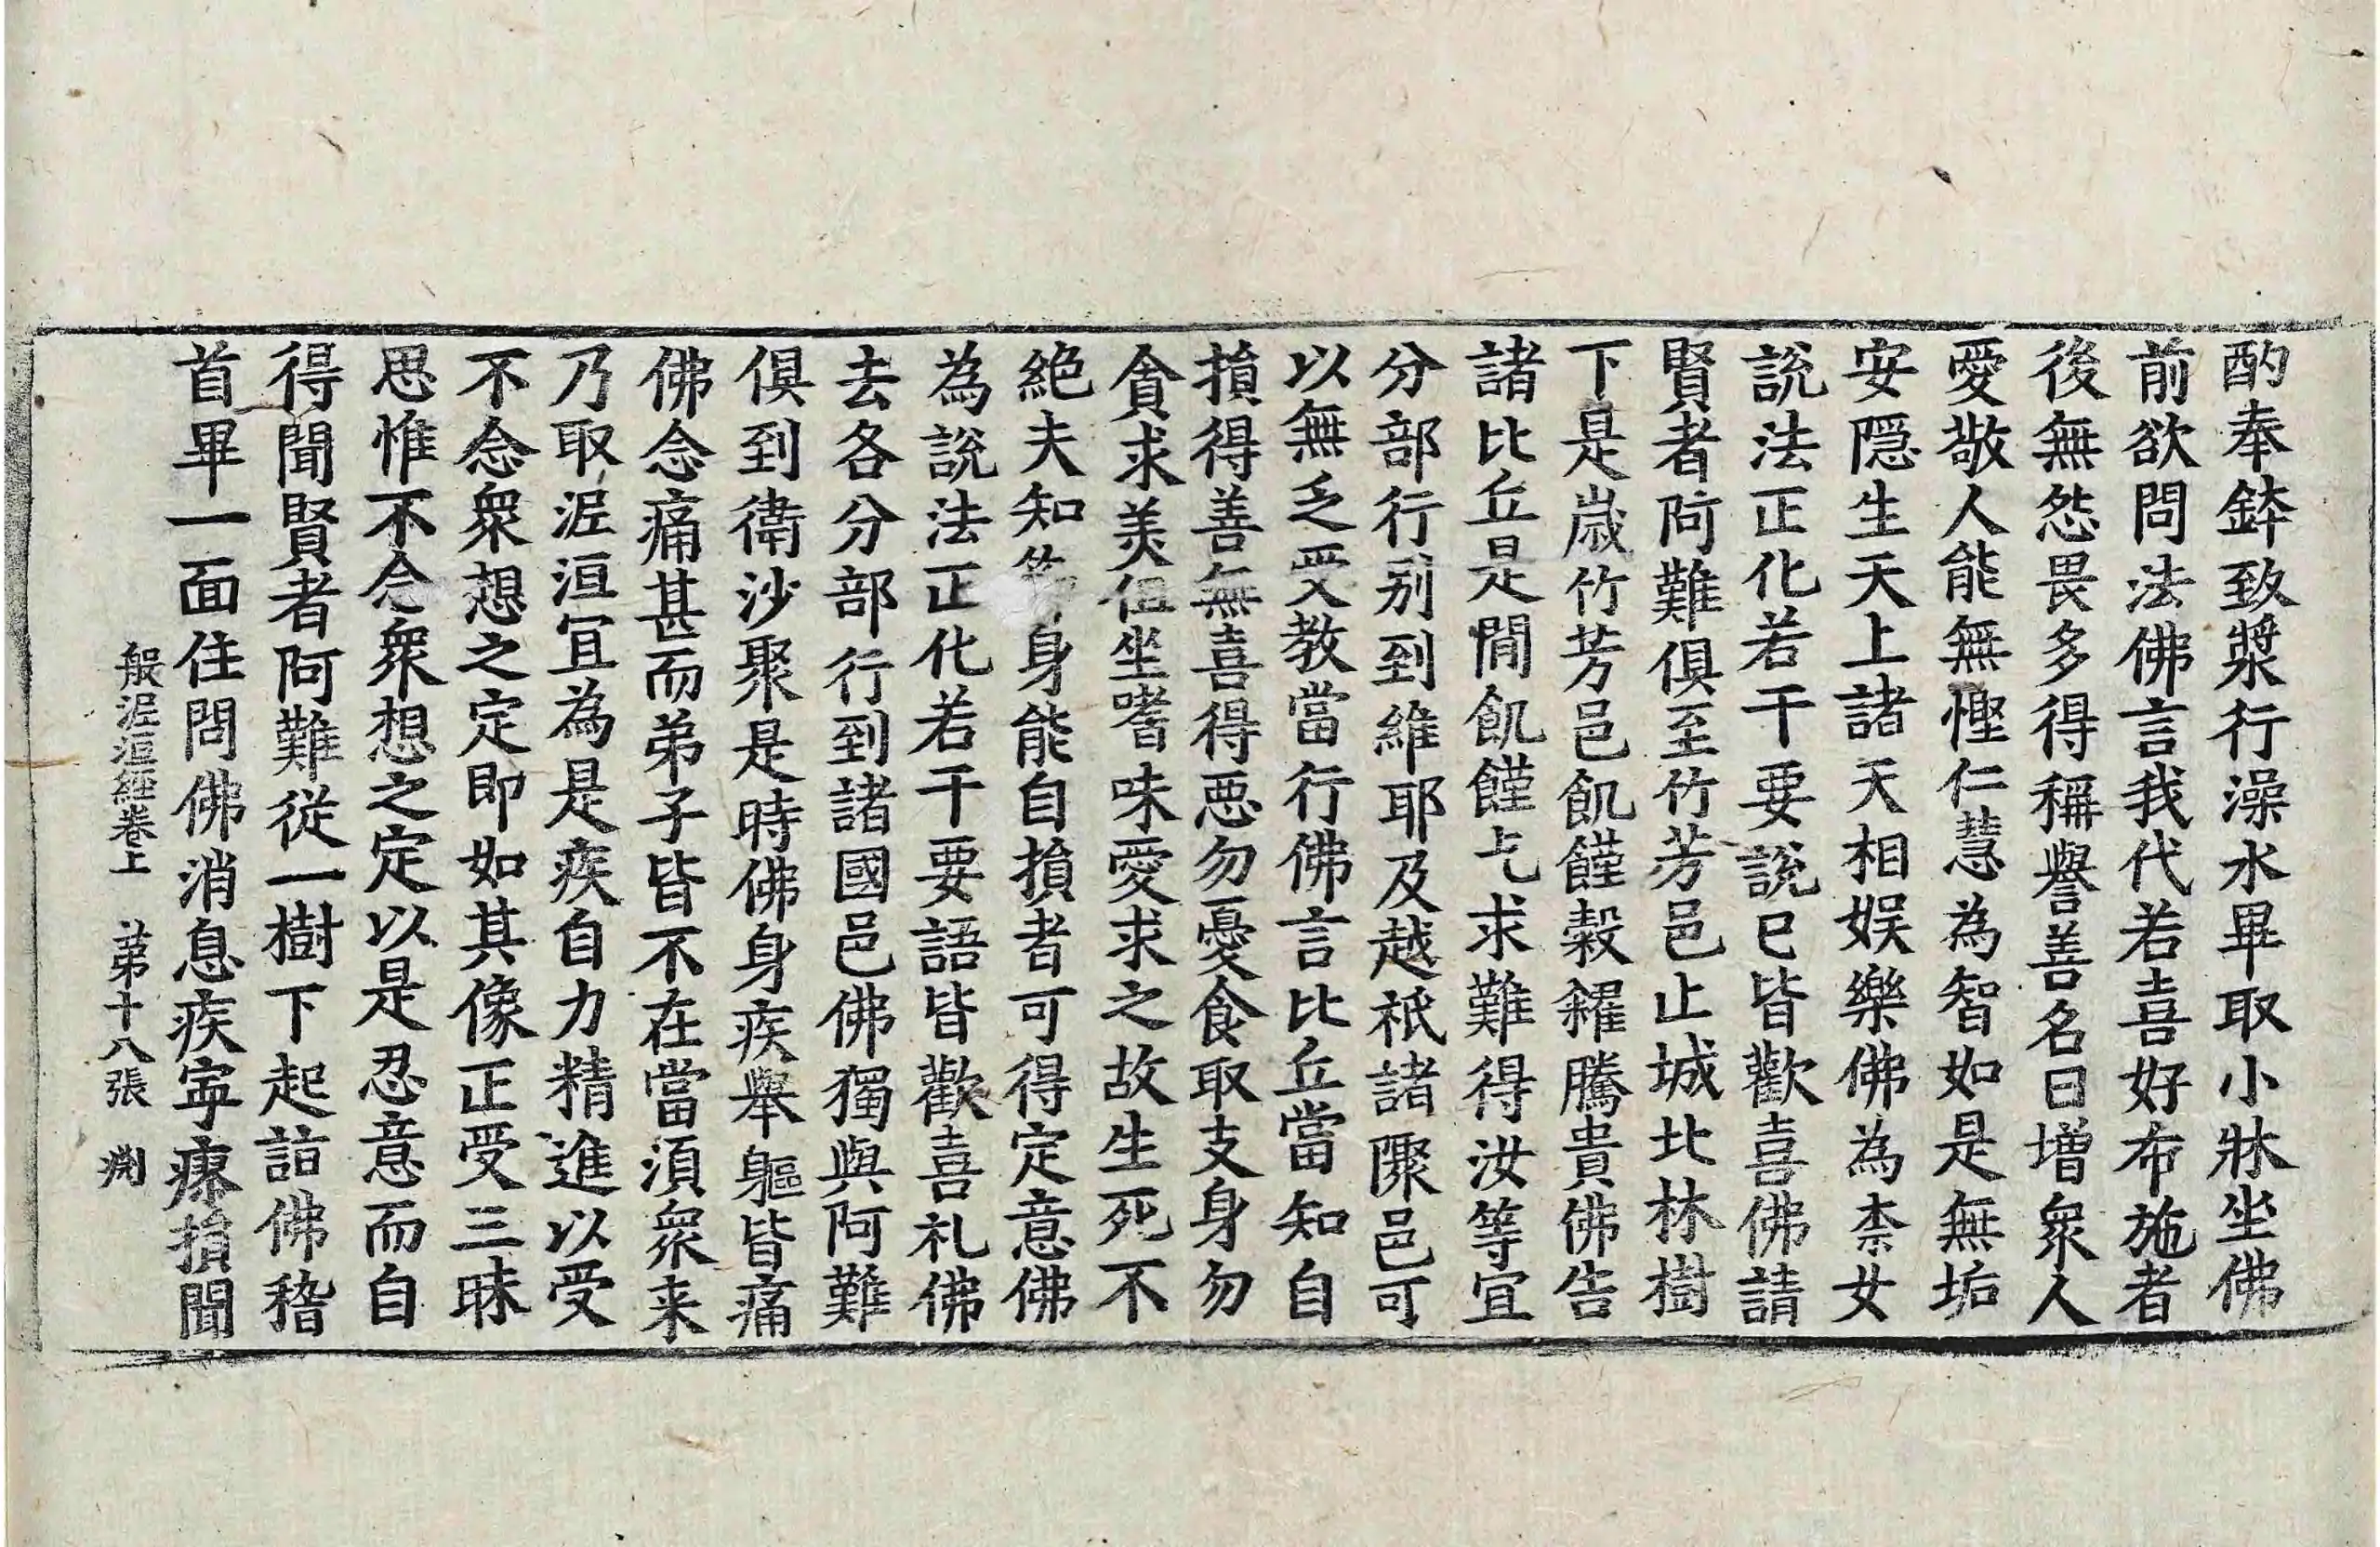 酌奉鉢致漿行澡水畢取小牀坐佛
前欲問法佛言我代若喜好布施者
後無怨畏多得稱譽善名日增衆人
愛敬人能無慳仁慧為智如是無垢
安隱生天上諸天相娛樂佛為柰女
說法正化若干要說已皆歡喜佛請
賢者阿難俱至竹芳邑止城北林樹
下是歲竹芳邑飢饉穀糴騰貴佛告
諸比丘是間飢饉乞求難得汝等宜
分部行别到維耶及越祇諸聚邑可
以無乏受教當行佛言比丘當知自
損得善無喜得惡勿憂食取支身勿
貪求美但坐嗜味愛求之故生死不
絶夫知身能自損者可得定意佛
為說法正化若干要語皆歡喜礼佛
去各分部行到諸國邑佛獨與阿難
俱到衛沙聚是時佛身疾舉軀皆痛
佛念痛甚而弟子皆不在當須衆来
乃取泥洹宜為是疾自力精進以受
不念衆想之定即如其像正受三昧
思惟不念衆想之定以是忍意而自
得聞賢者阿難從一樹下起詣佛稽
首畢一面住問佛消息疾寧瘳損聞
般泥洹經卷上 第十八張 渕